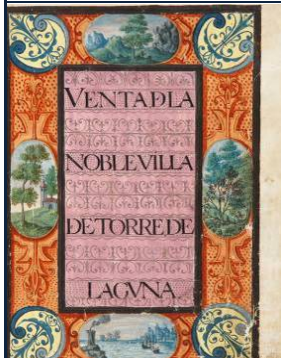 VENTADLA
NOBLEVILLA
DETORREDE
LAGVNA